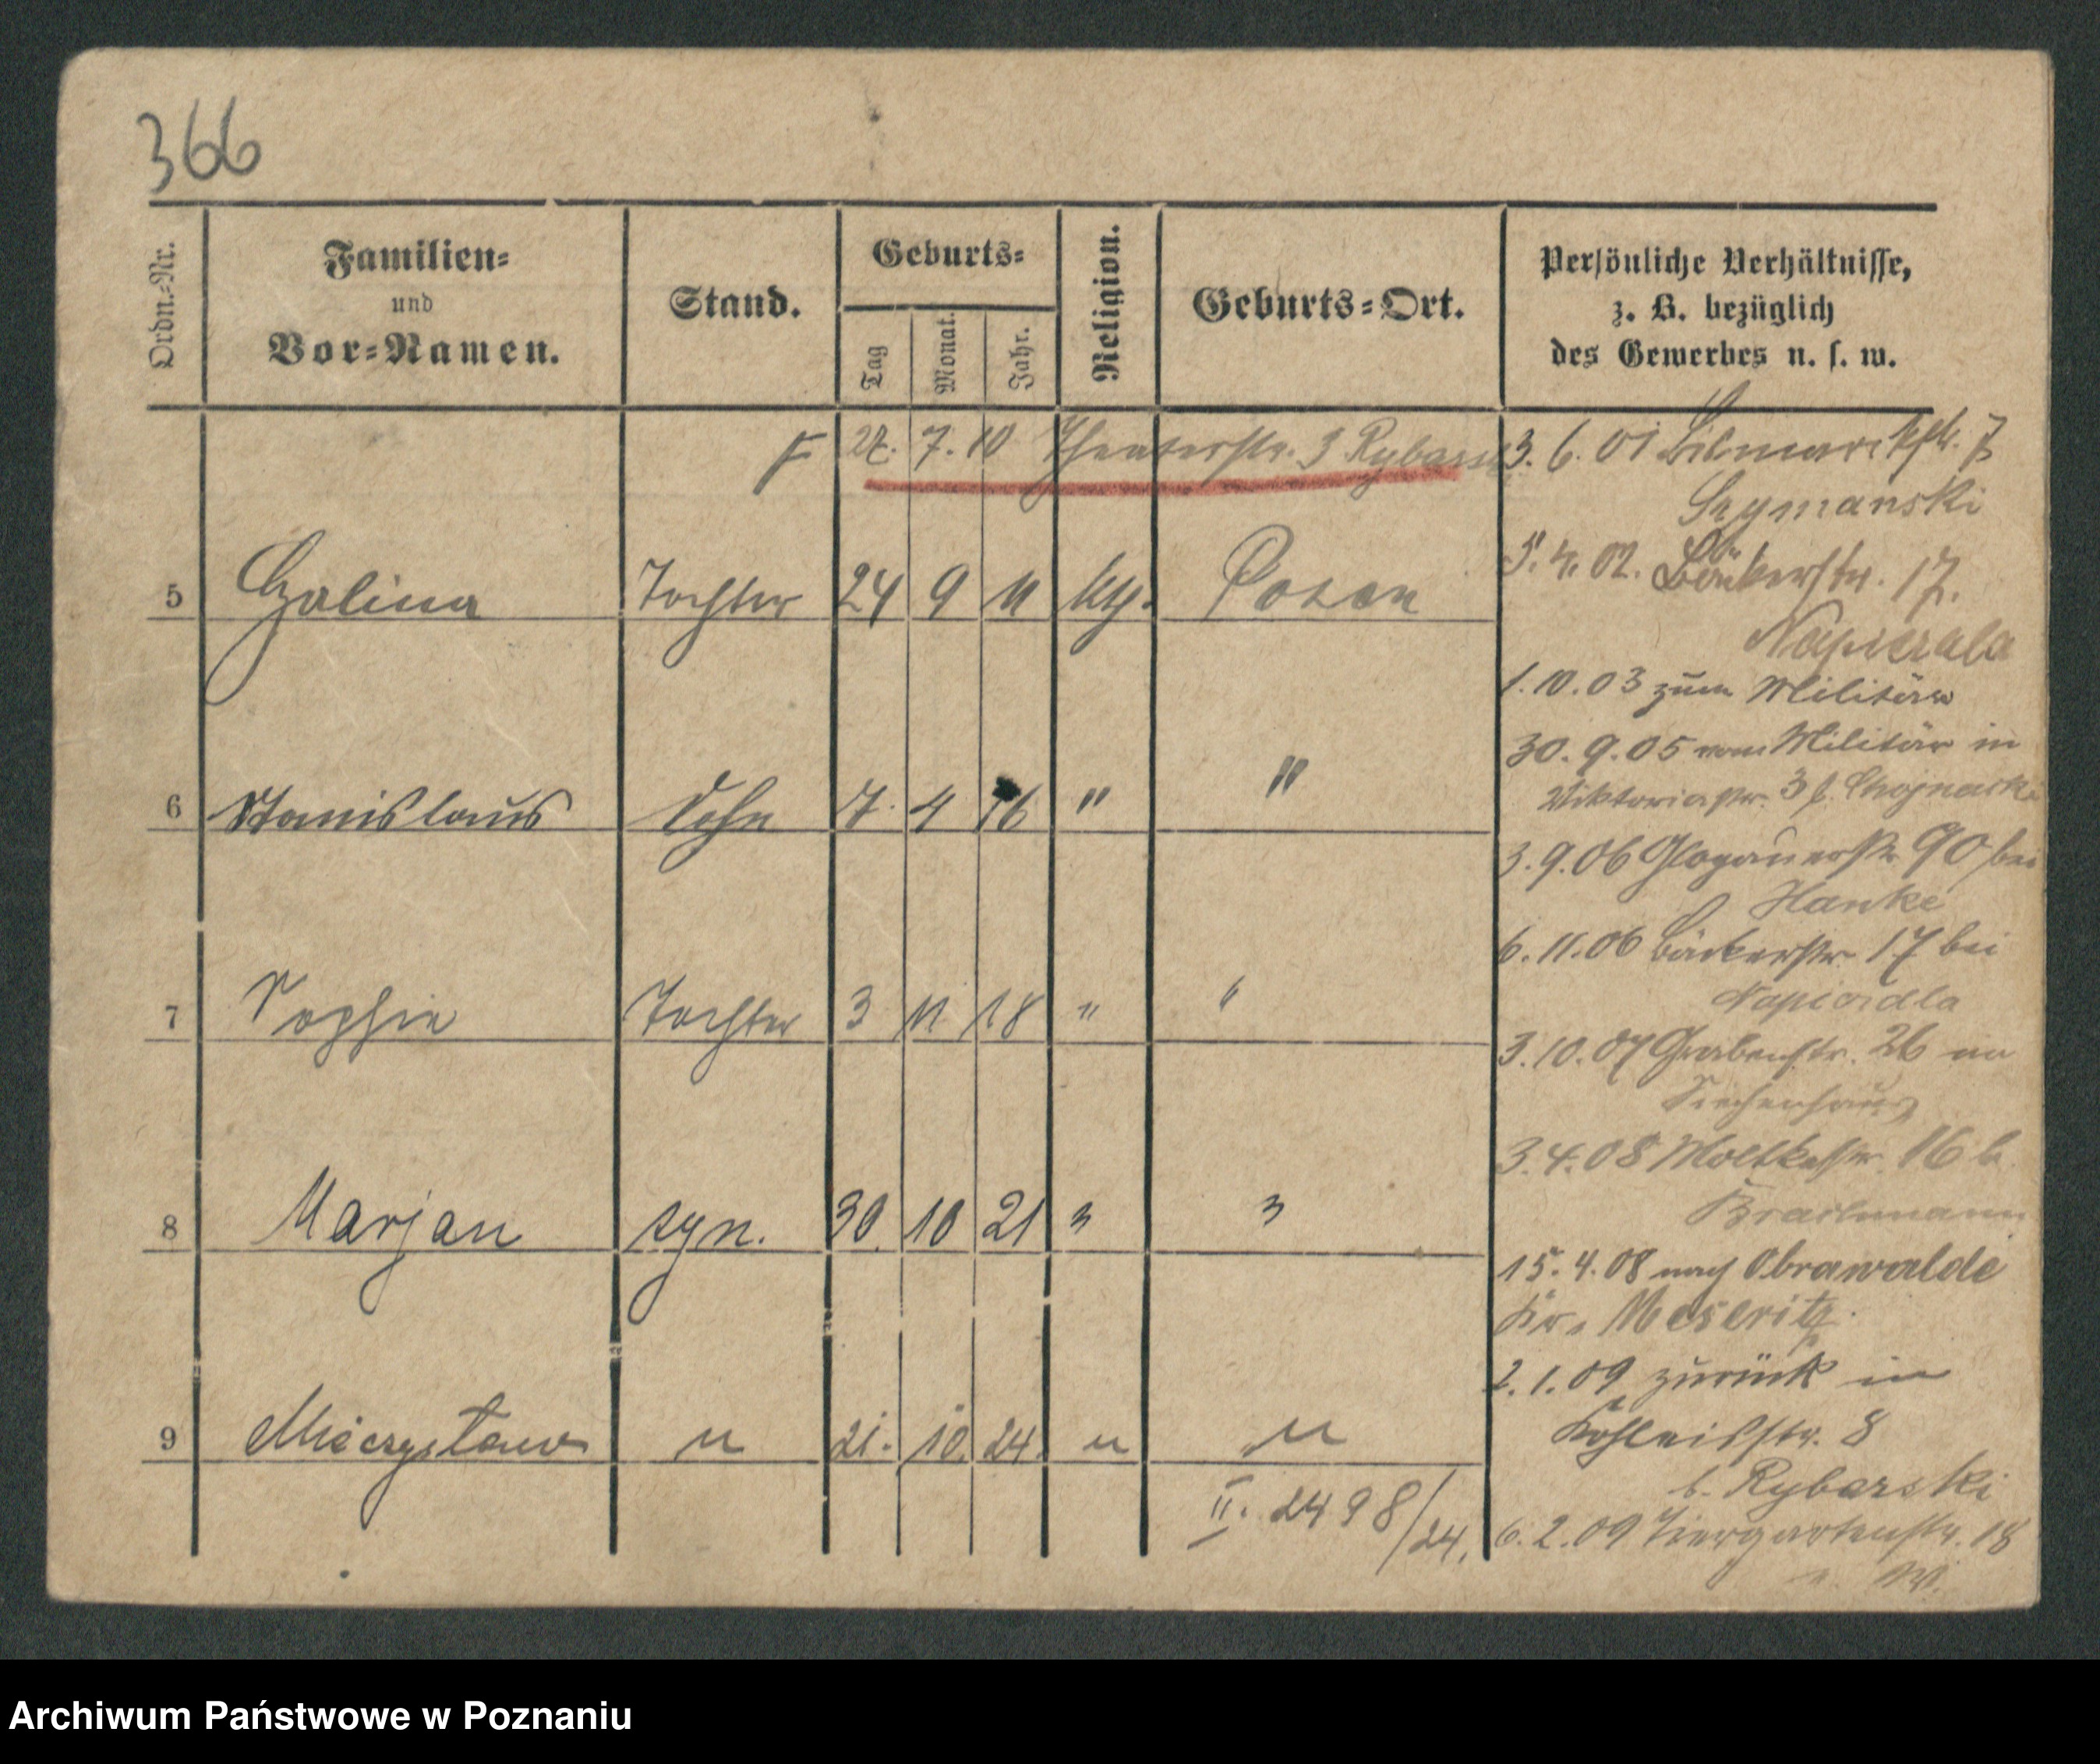 366
Ordn.=Nr.
Familien=
und
Vor=Namen.
Stand.
Geburts=
Tag
Monat.
Jahr.
Religion.
Geburts=Ort.
Persönliche Verhältnisse,
z. B. bezüglich
des Gewerbes u. s. w.
27. 7. 10 Theaterstr. 3 Rybarski
5 Halina Tochter 24 9 11 kth. Posen
6 Stanislaus Sohn 7. 4 16 " "
7 Sophie Tochter 3 11 18 " "
8 Marjan syn. 30. 10 21 " "
9 Mieczysław " 21. 10. 24. " "
II. 2498/24.
3. 6. 01 7
Szymanski
5. 4. 02. Bäckerstr. 17.
Napierala
1. 10. 03 zum Militär
30. 9. 05 vom Militär in
Viktoriastr. 3 b.
3. 9. 06 Glogauerstr. 90 bei
Hanke
6. 11. 06 Bäckerstr. 17 bei
Napierala
3. 10. 07 Grabenstr. 26 im
Siechenhaus
3. 4. 08 Moltkestr. 16 b.
15. 4. 08 nach Obrawalde
Kr. Meseritz.
2. 1. 09 zurück in
Kohleisstr. 8
b. Rybarski
6. 2. 09 Tiergartenstr. 18
Archiwum Państwowe w Poznaniu